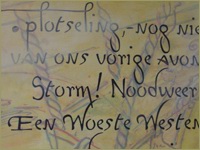 plotseling,-nog nie
van ons vorige avon
Storm! Noodweer
Een Woeste Westen